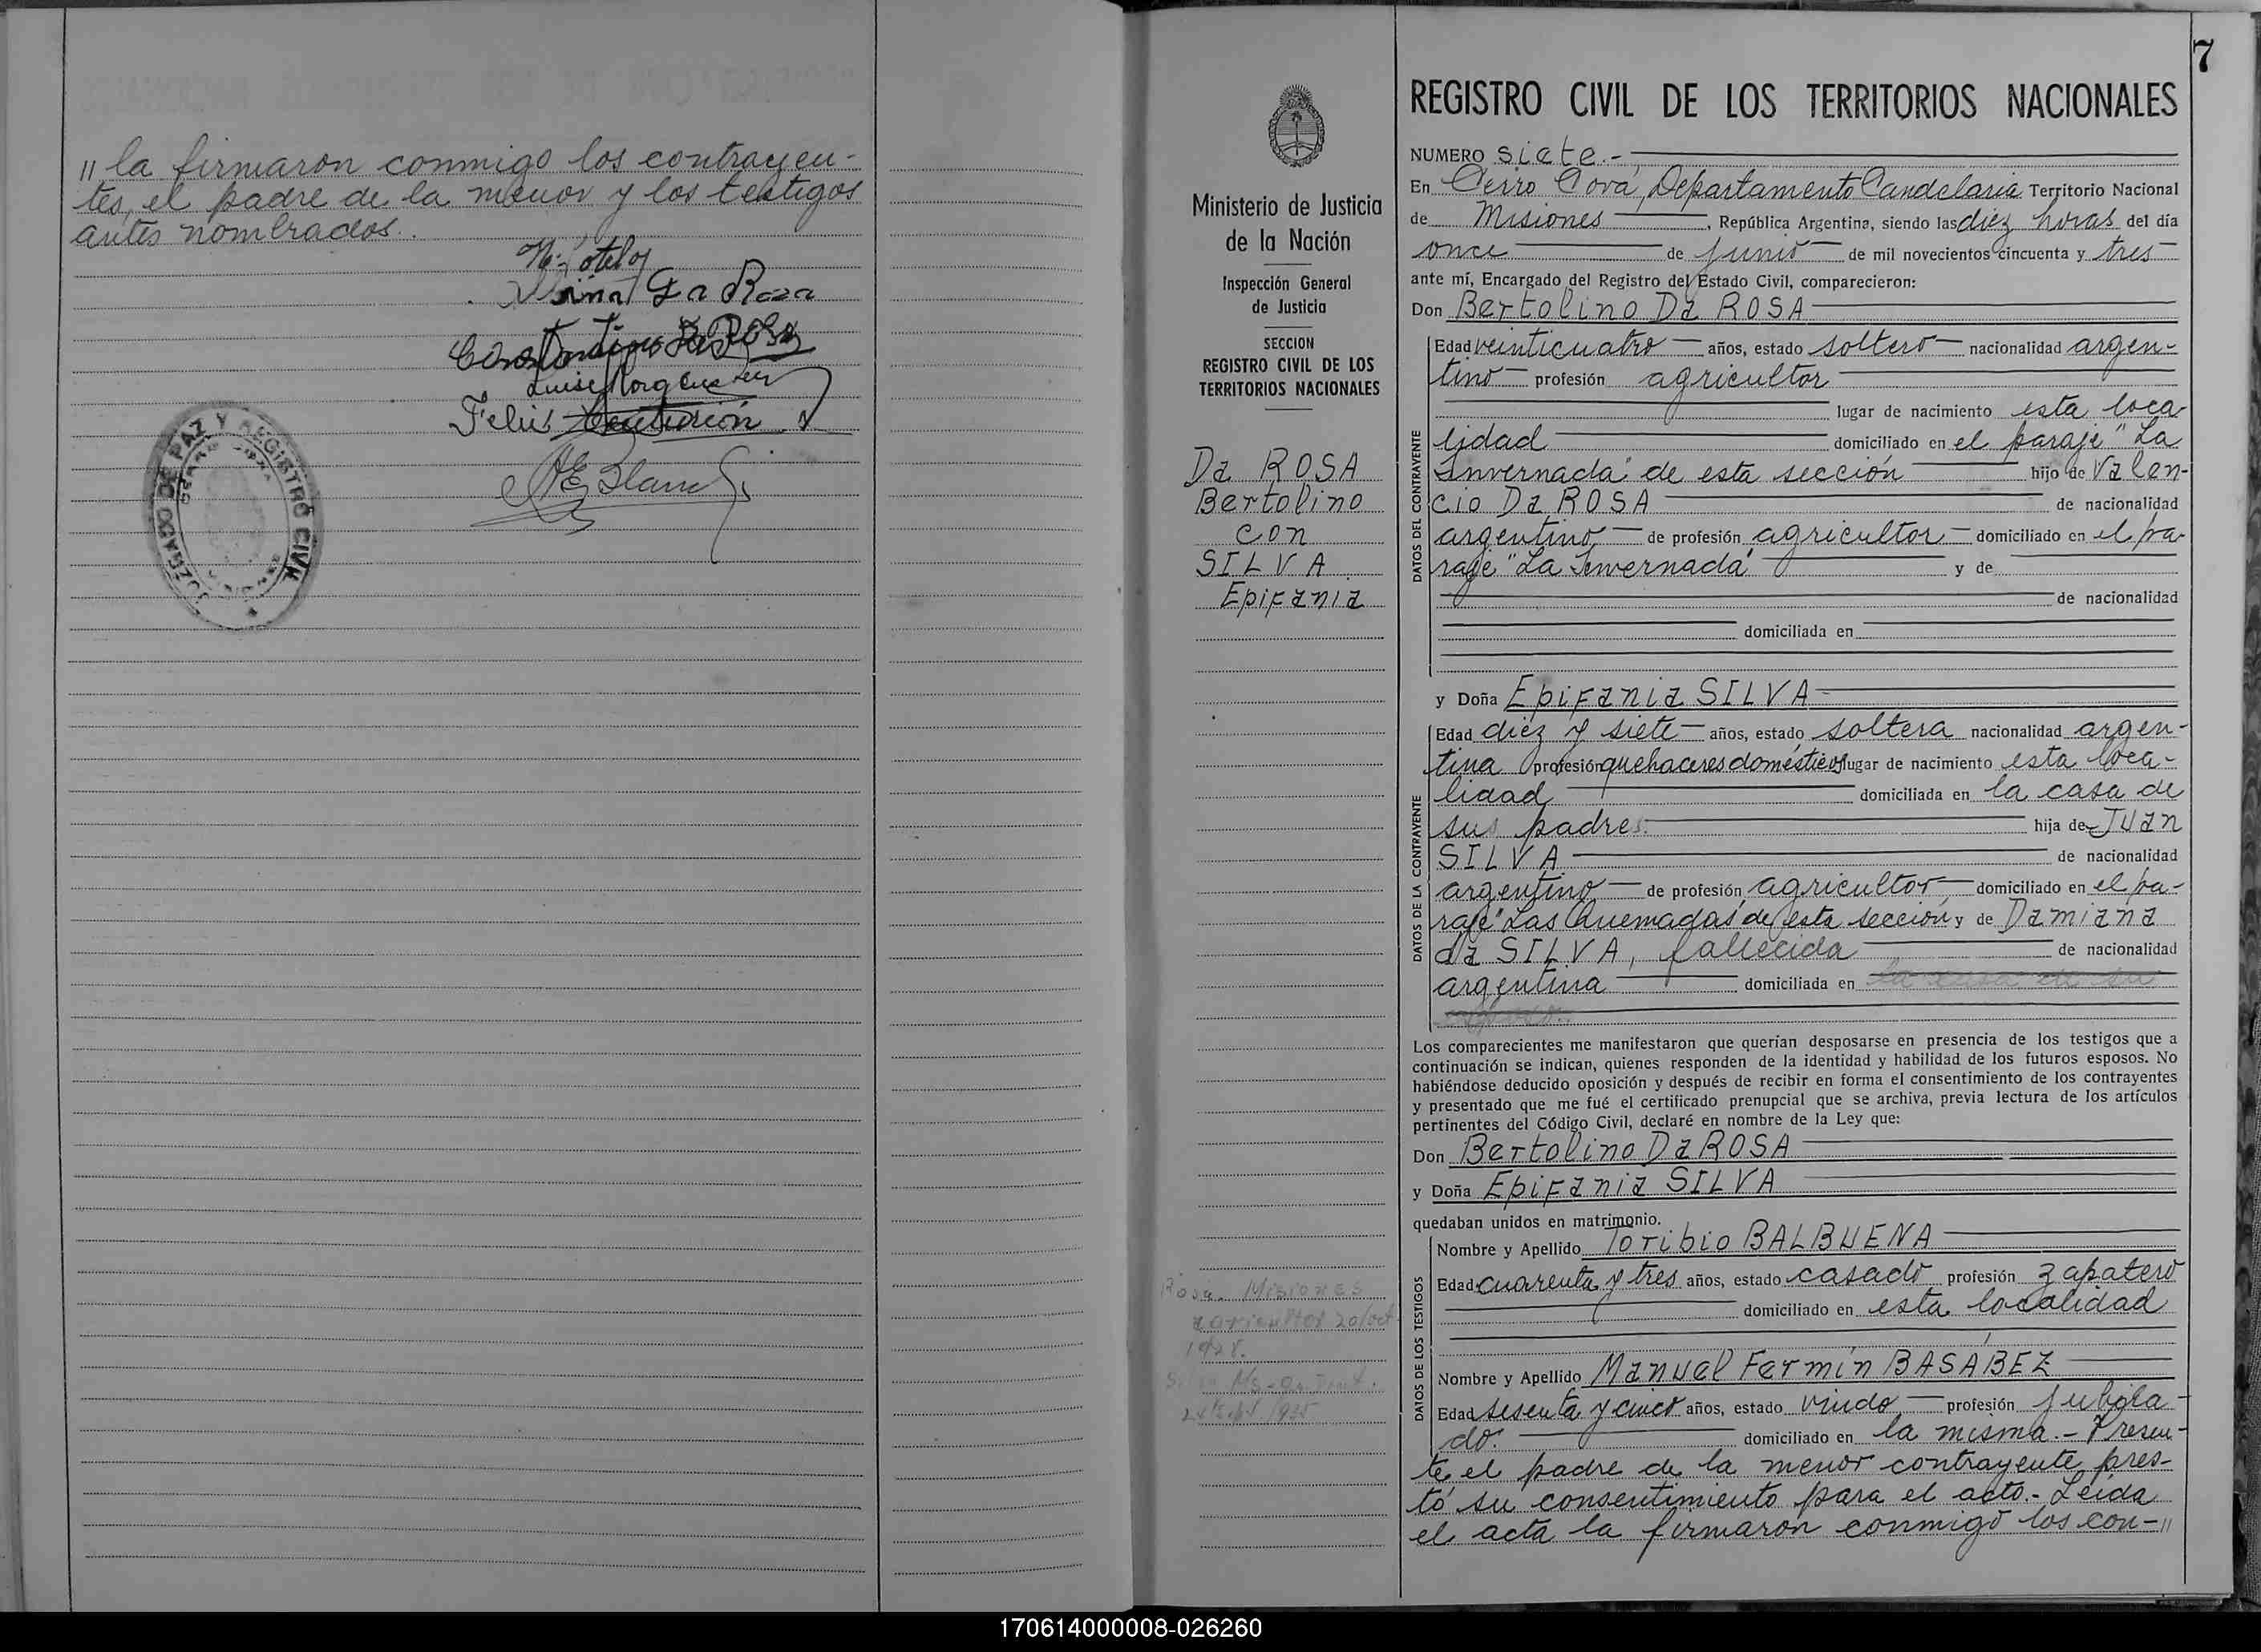 " la firmaron conmigo los contrayen-
tes, el padre de la menor y los testigos
antes nombrados.
Da Rosa
Constantino Da Rosa
Luis Morgenstern
Felis
JUZGADO DE PAZ Y REGISTRO CIVIL
7
Ministerio de Justicia
de la Nación
Inspección General
de Justicia
SECCION
REGISTRO CIVIL DE LOS
TERRITORIOS NACIONALES
Da ROSA
Bertolino
con
SILVA
Epifania
Misiones
agricultor 20/oct
REGISTRO CIVIL DE LOS TERRITORIOS NACIONALES
NUMERO siete.-
En Cerro Corá, Departamento Candelaria Territorio Nacional
de Misiones, República Argentina, siendo las diez horas del día
once de junio de mil novecientos cincuenta y tres
ante mí, Encargado del Registro del Estado Civil, comparecieron:
Don Bertolino Da ROSA
DATOS DEL CONTRAYENTE
Edad veinticuatro años, estado soltero nacionalidad argen-
tino profesión agricultor
lugar de nacimiento esta loca-
lidad domiciliado en el paraje "La
Invernada" de esta sección hijo de Valen-
cio Da ROSA de nacionalidad
argentino de profesión agricultor domiciliado en el pa-
raje "La Invernada" y de
de nacionalidad
domiciliada en
y Doña Epifania SILVA
DATOS DE LA CONTRAYENTE
Edad diez y siete años, estado soltera nacionalidad argen-
tina profesión quehaceres domésticos lugar de nacimiento esta loca-
lidad domiciliada en la casa de
sus padres. hija de Juan
SILVA de nacionalidad
argentino de profesión agricultor domiciliado en el pa-
raje "Las Quemadas" de esta sección y de Damiana
da SILVA, fallecida de nacionalidad
argentina domiciliada en
Los comparecientes me manifestaron que querían desposarse en presencia de los testigos que a
continuación se indican, quienes responden de la identidad y habilidad de los futuros esposos. No
habiéndose deducido oposición y después de recibir en forma el consentimiento de los contrayentes
y presentado que me fué el certificado prenupcial que se archiva, previa lectura de los artículos
pertinentes del Código Civil, declaré en nombre de la Ley que:
Don Bertolino Da ROSA
y Doña Epifania SILVA
quedaban unidos en matrimonio.
DATOS DE LOS TESTIGOS
Nombre y Apellido Toribio BALBUENA
Edad cuarenta y tres años, estado casado profesión zapatero
domiciliado en esta localidad
Nombre y Apellido Manuel Fermín BASABEZ
Edad sesenta y cinco años, estado viudo profesión jubila-
do. domiciliado en la misma.- Presen-
te el padre de la menor contrayente pres-
tó su consentimiento para el acto.- Leída
el acta la firmaron conmigo los con-"
170614000008-026260